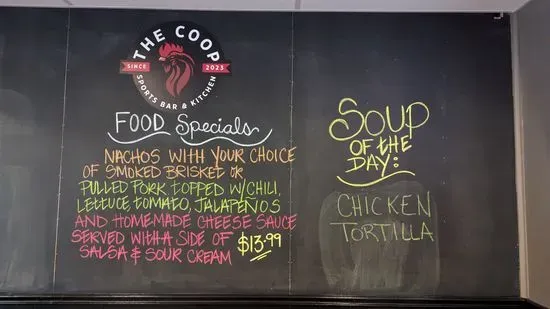 THE COOP
SINCE 2023
SPORTS BAR & KITCHEN
FOOD Specials
NACHOS WITH YOUR CHOICE
OF SMOKED BRISKET OR
PULLED PORK TOPPED W/CHILI,
LETTUCE, TOMATO, JALAPENOS
AND HOMEMADE CHEESE SAUCE
SERVED WITH A SIDE OF
SALSA & SOUR CREAM
$13.99
SOUP
OF THE
DAY:
CHICKEN
TORTILLA